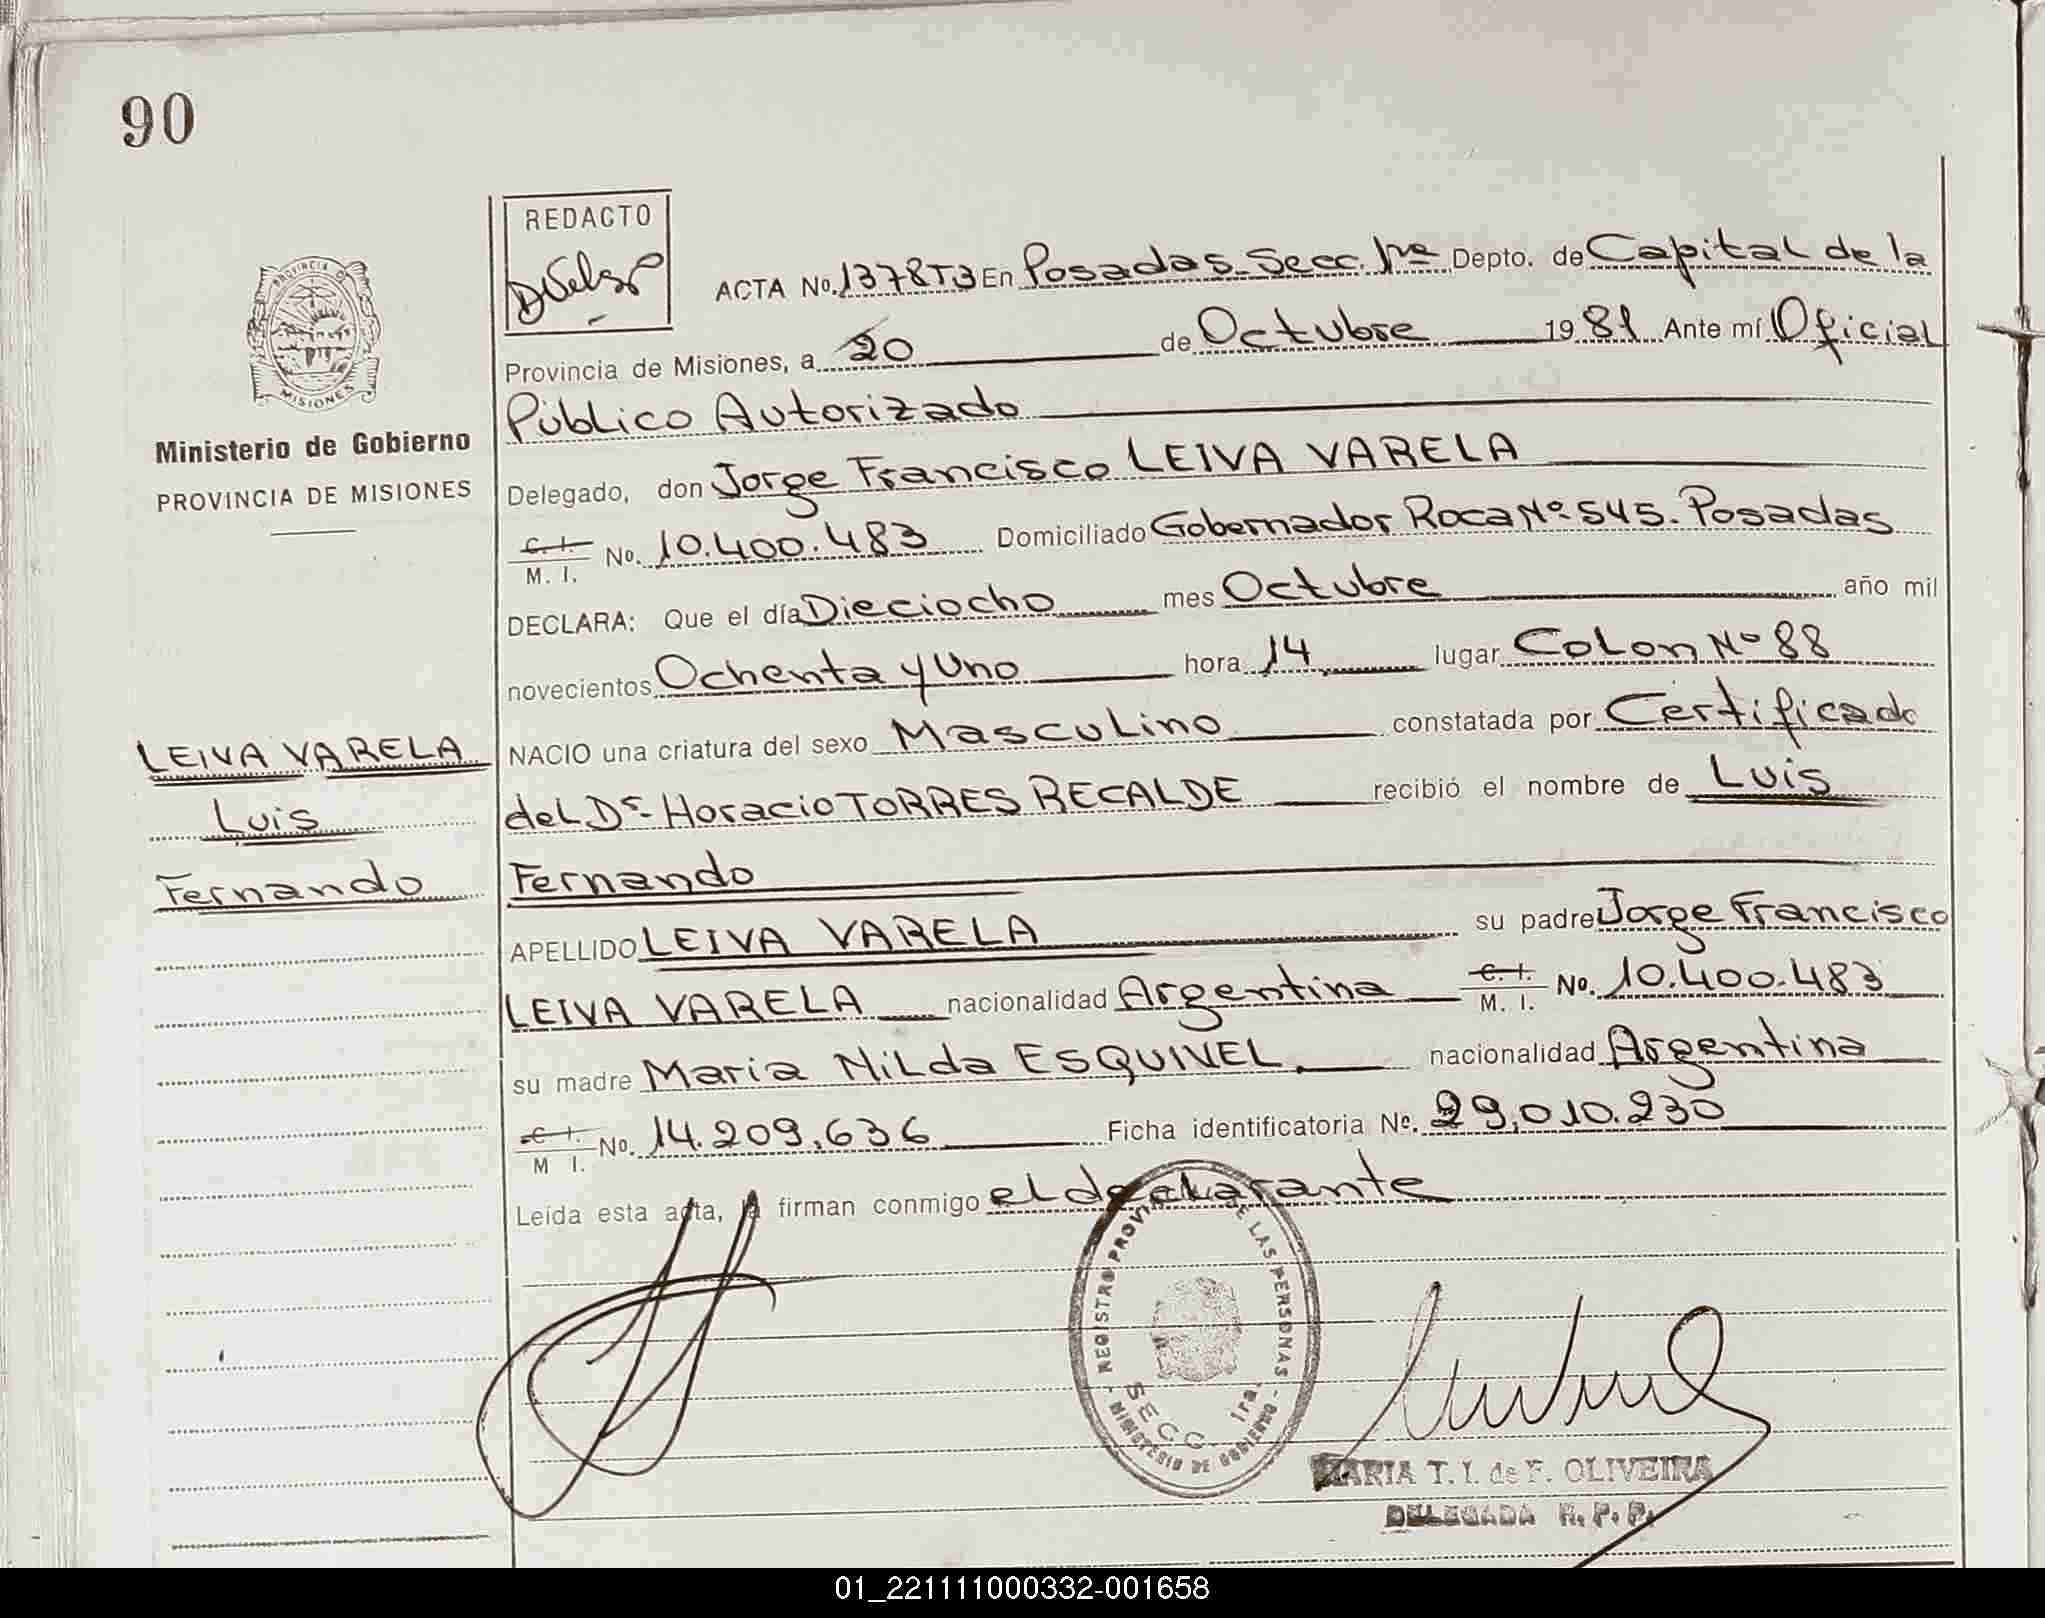 90
REDACTO
PROVINCIA D
MISIONES
ACTA No. 1378T3 En Posadas. Secc. 1ra Depto. de Capital de la
Provincia de Misiones, a 20 de Octubre 1981 Ante mí Oficial
Público Autorizado
Ministerio de Gobierno
PROVINCIA DE MISIONES
Delegado, don Jorge Francisco LEIVA VARELA
C. I. M. I. No. 10.400.483 Domiciliado Gobernador Roca Nº 545. Posadas
DECLARA: Que el día Dieciocho mes Octubre año mil
novecientos Ochenta y Uno hora 14, lugar Colon Nº 88
LEIVA VARELA
Luis
Fernando
NACIO una criatura del sexo Masculino constatada por Certificado
del Dr. Horacio TORRES RECALDE recibió el nombre de Luis
Fernando
APELLIDO LEIVA VARELA su padre Jorge Francisco
LEIVA VARELA nacionalidad Argentina C. I. M. I. No. 10.400.483
su madre Maria Nilda ESQUIVEL. nacionalidad Argentina
C. I. M I. No. 14.209.636 Ficha identificatoria No. 29.010.230
Leída esta acta, firman conmigo el declarante
REGISTRO PROVI DE LAS PERSONAS
SECC. 1ra.
- MINISTERIO DE GOBIERNO -
MARIA T. I. de F. OLIVEIRA
DELEGADA R. P. P.
01_221111000332-001658